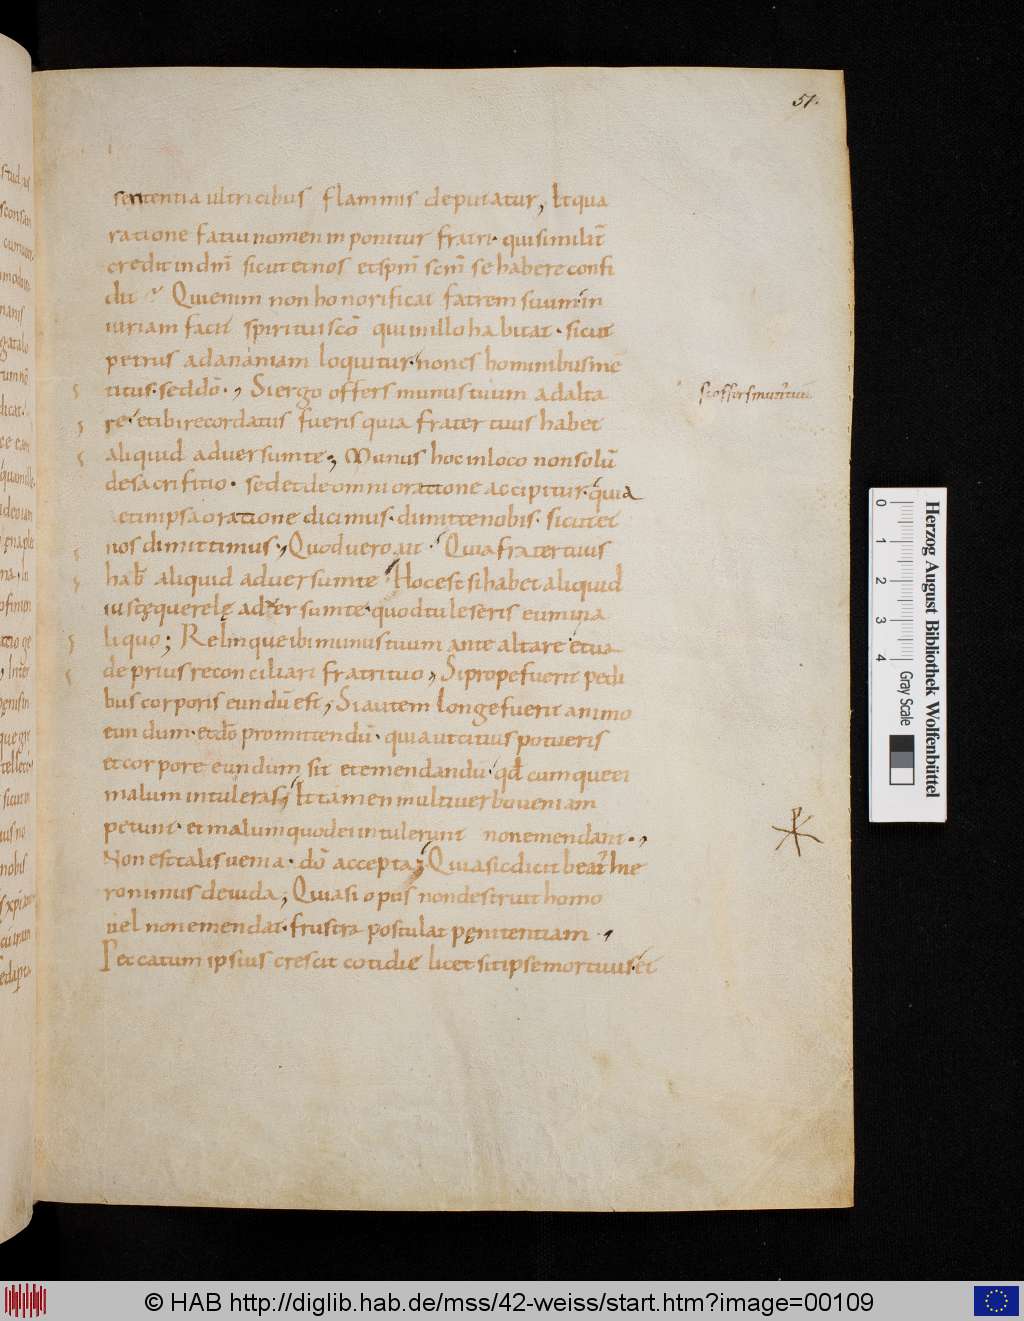 51.
sententia ultricibus flammis deputatur, Et qua
ratione fatui nomen inponitur fratri· qui similit̄
credit in dm̄ sicut et nos et spm̄ scm̄ se habere confi
dit Qui enim non honorificat fatrem suum· in
iuriam facit spiritui scō qui in illo habitat· sicut
petrus ad ananiam loquitur· non es hominibus me
titus· sed dō·, Si ergo offers munus tuum ad alta
si offers mun̄ tuū
re· et ibi recordatus fueris quia frater tuus habet
aliquid adversum te; Munus hoc in loco non solū
de sacrifitio· sed et de omni oratione accipitur· quia
et in ipsa oratione dicimus· dimitte nobis· sicut et
nos dimittimus·, Quod vero ait· Quia frater tuus
hab& aliquid adversum te· Hoc est si habet aliquid
iustę querelę adversum te· quod tu leseris eum in a
liquo; Relinque ibi munus tuum ante altare· et va
de prius reconciliari fratri tuo, Si prope fuerit pedi
bus corporis eundū est, Si autem longe fuerit animo
eundum· et dō promittendū· quia ut citius potueris
et corpore eundum sit et emendandū· qđ cumque ei
malum intuleras; Et tamen multi verbo veniam
petunt· et malum quod ei intulerunt non emendant·,
Non est talis venia· dō accepta; Quia sic dicit beat̄ hie
ronimus de iuda; Quasi opus non destruit homo
vel non emendat· frustra postulat pęnitentiam·,
Peccatum ipsius crescit cotidie licet sit ipse mortuus· et
Herzog August Bibliothek Wolfenbüttel
Gray Scale
0 1 2 3 4
© HAB http://diglib.hab.de/mss/42-weiss/start.htm?image=00109